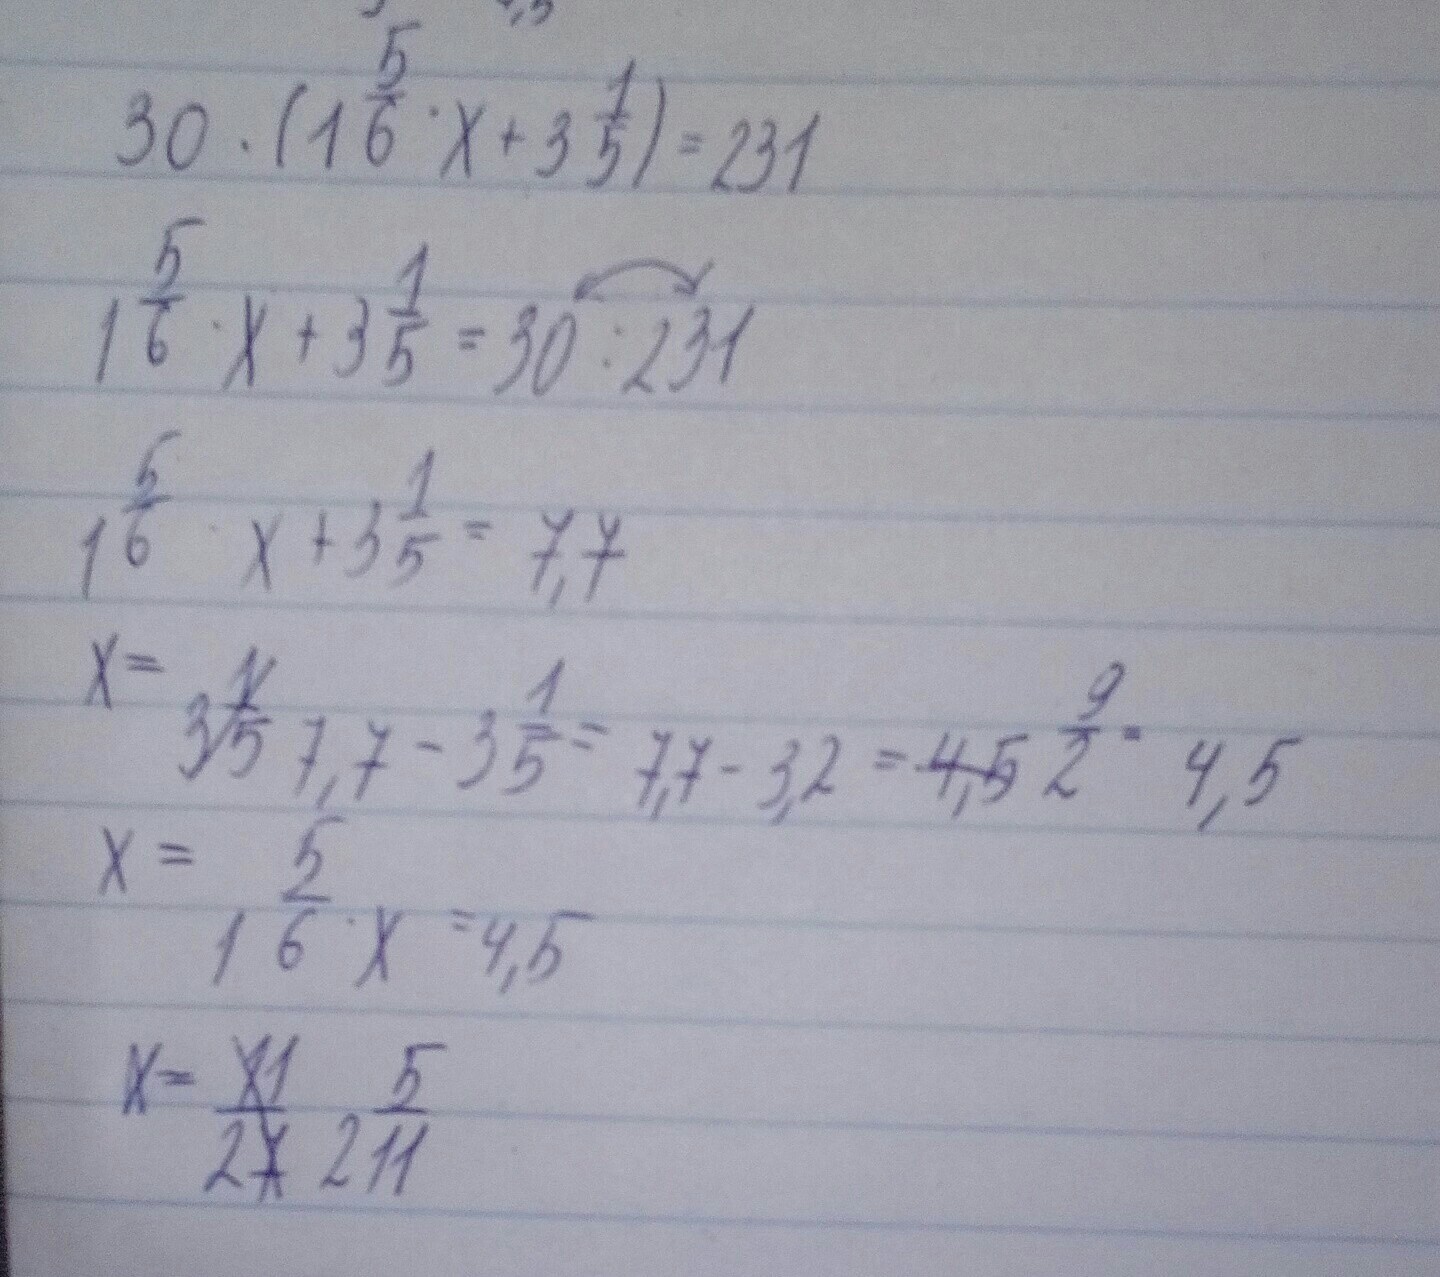 30 · (1 5/6 · x + 3 1/5) = 231
1 5/6 · x + 3 1/5 = 30 : 231
1 5/6 · x + 3 1/5 = 7,7
x =
7,7 - 3 1/5 = 7,7 - 3,2 = 4,5 9/2 = 4,5
x =
1 5/6 · x = 4,5
x = 2 5/11